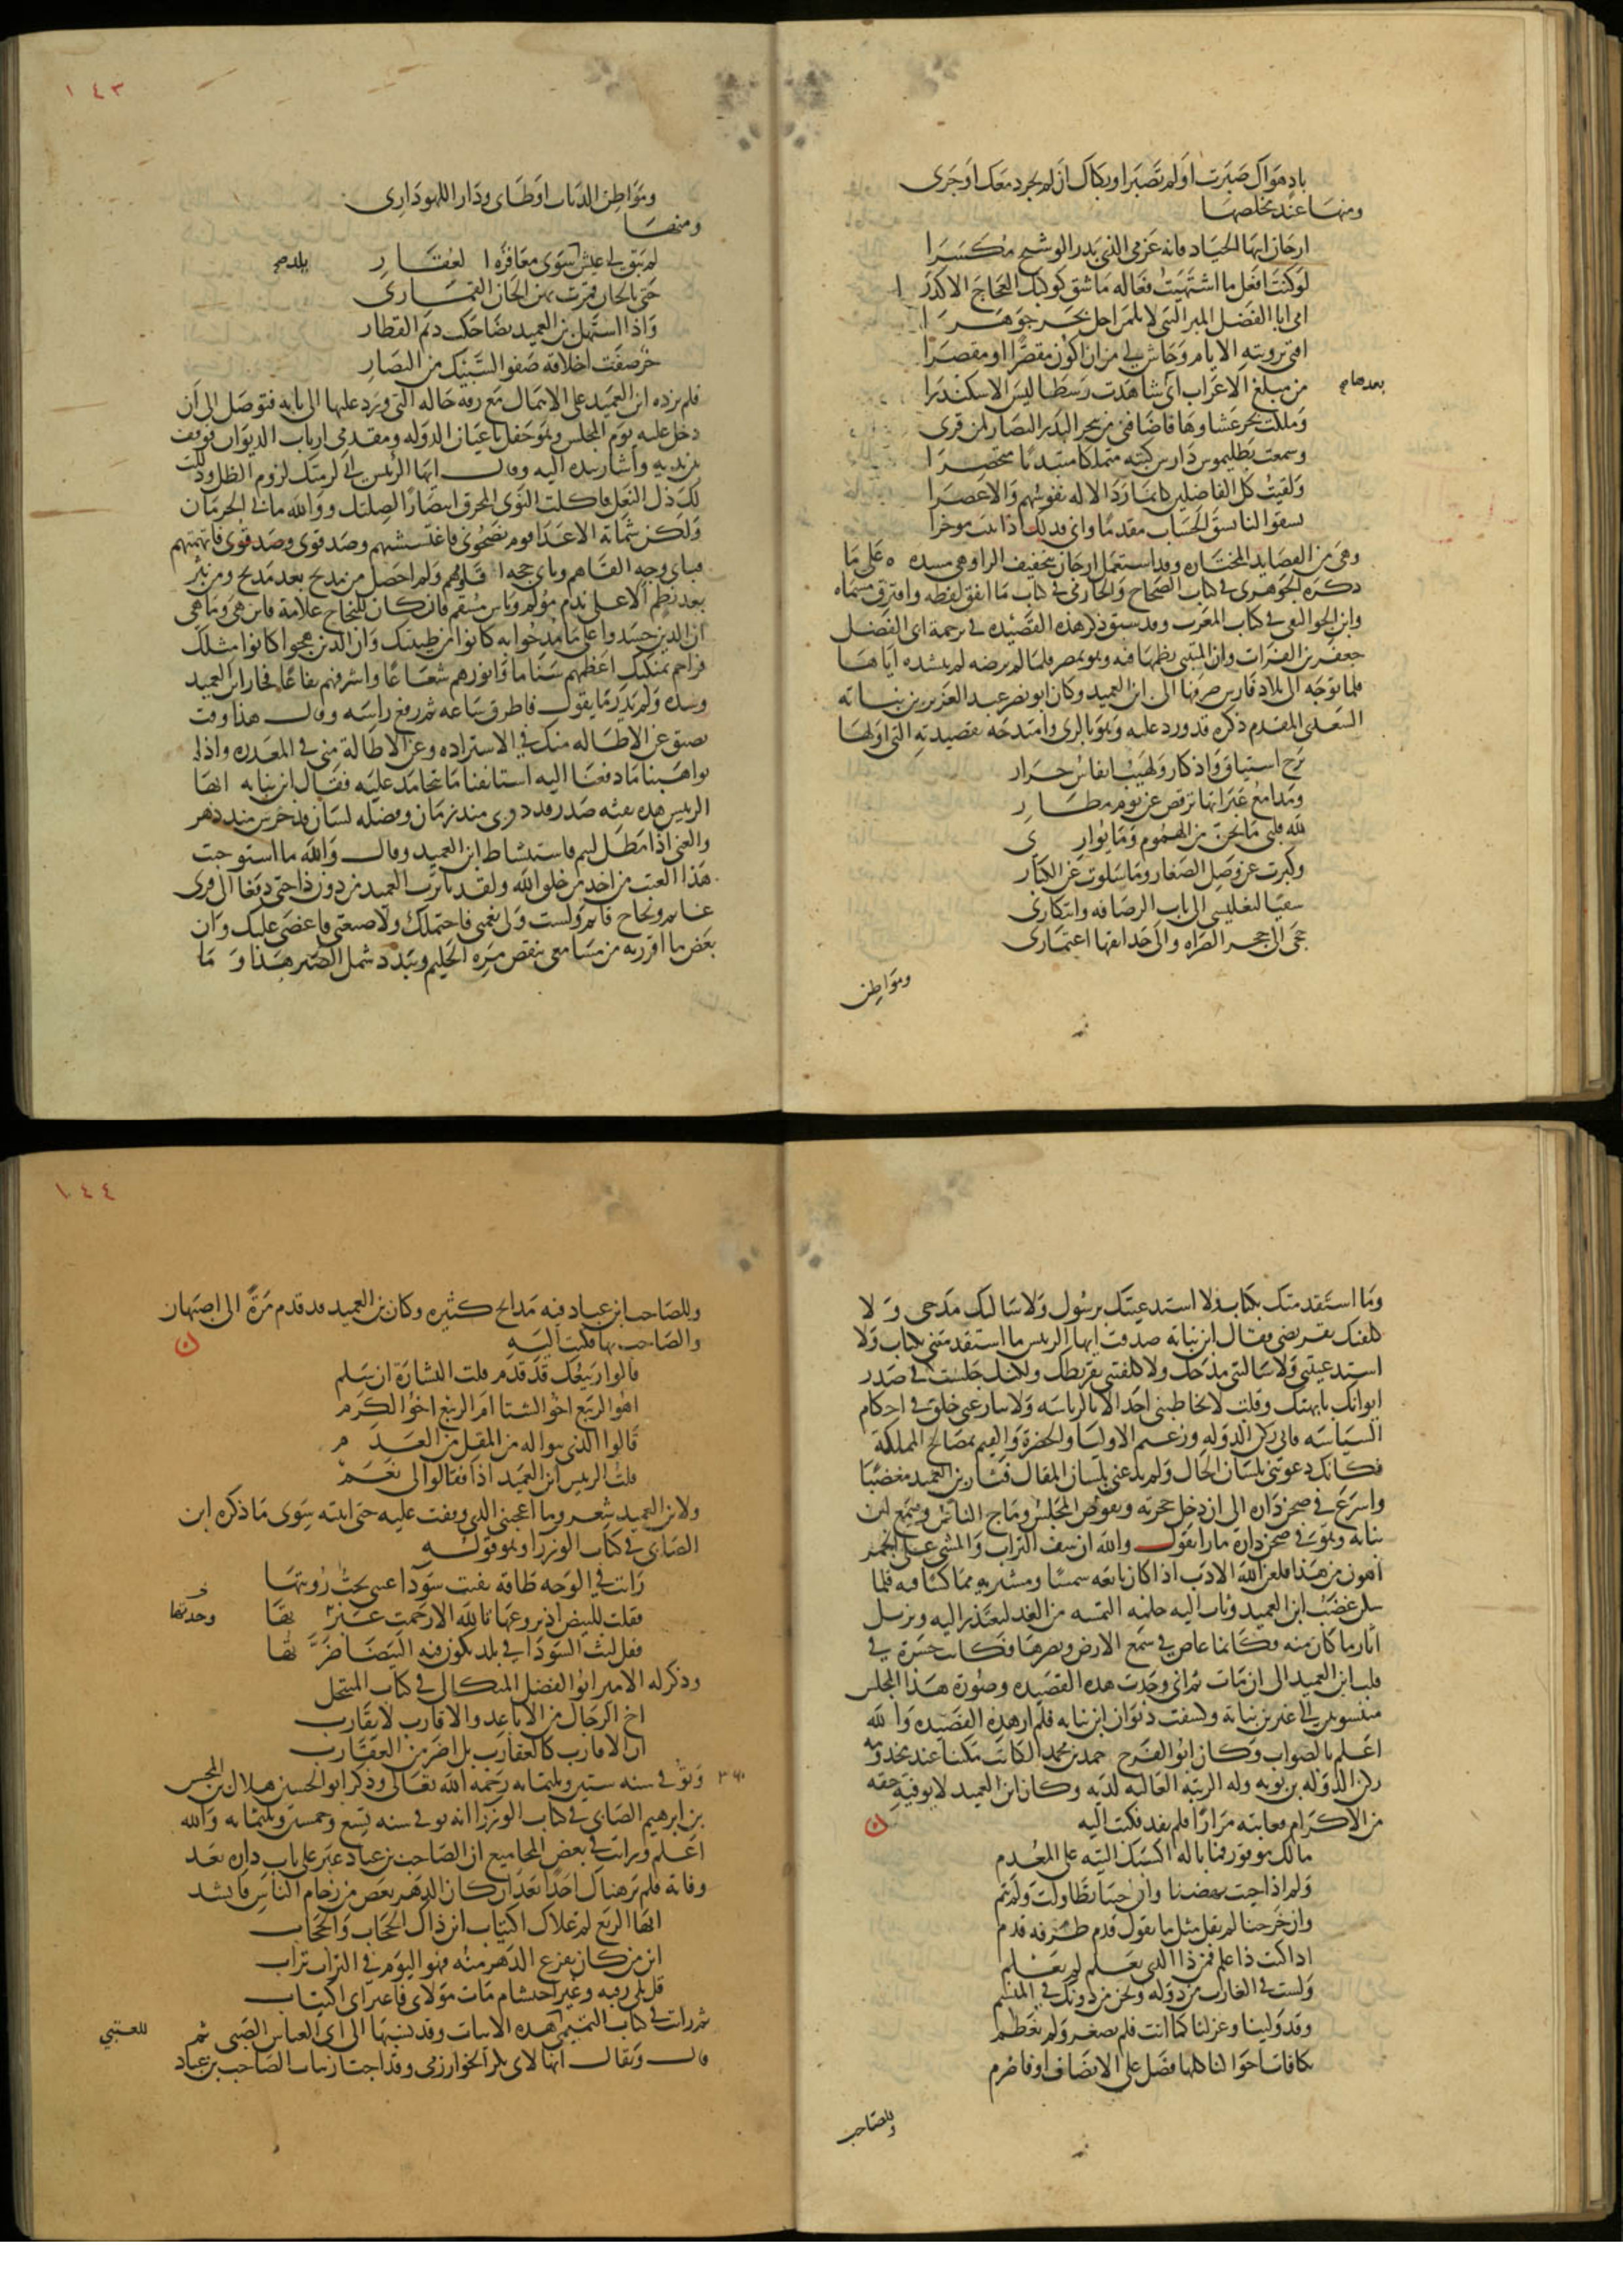 باد هواك صبرت او لم تصبرا وبكاك ان لم يجر دمعك او جرى
ومنها عند مخلصها
ارجان ايتها الجياد فانه عزمي الذي يذر الوشيج مكسرا
لو كنت افعل ما اشتهيت فعاله ما شق كوكبك العجاج الاكدرا
امي ابا الفضل المبر اليتي لايممن اجل بحر جوهرا
افتى برويته الانام وحاش لي من ان اكون مقصرا او مقصرا
من مبلغ الاعراب اني شاهدت رسطاليس الاسكندرا
بعدها م
ومللت نحر عشارها فاضافني من ينحر البدر النضار لمن قرى
وسمعت بطليموس دارس كتبه متملكا متبديا متحضرا
ولقيت كل الفاضلين كانما رد الاله نفوسهم والاعصرا
نسقوا لنا نسق الحساب مقدما واتى فذلك اذ اتيت موخرا
وهي من القصايد المختاره وقد استعمل ارجان بتخفيف الرا وهي مشدده على ما
ذكره الجوهري في كتاب الصحاح والحازمي في كتاب ما اتفق لفظه وافترق مسماه
وابن الجواليقي في كتاب المعرب وقد سبق ذكر هذه القصيده في ترجمة ابي الفضل
جعفر بن الفرات وان المتنبي نظمها فيه وهو بمصر فلما لم يرضه لم ينشده اياها
فلما توجه الى بلاد فارس صرفها الى ابن العميد وكان ابو نصر عبد العزيز بن نباته
السعدي المقدم ذكره قد ورد عليه وهو بالري وامتدحه بقصيدته التي اولها
برح اشتياق واذكار ولهيب انفاس حرار
ومدامع عبراتها ترفض عن نوم مطار
لله قلبي ما يجن من الهموم وما يواري
وكبرت عن وصل الصغار وما سلوت عن الكبار
سقيا لتغليسي الى باب الرصافه وابتكاري
حجي الى حجر الصراه والى حدايقها اعتماري
ومواطن
١٤٣
ومواطن اللذات اوطاني ودار اللهو داري
ومنها
لم يبق لي عيش سوى معاقرة العقار
حتى بالحان قمرت بهن الحان القماري
واذا استهل بن العميد تضاحكت ديم القطار
خرق صفت اخلاقه صفو السبيك من النضار
فلم يزده ابن العميد على الاهمال مع رقة حاله التي ورد عليها الى بابه فتوصل الى ان
دخل عليه يوم المجلس وهو حفل باعيان الدوله ومقدمي ارباب الديوان فوقف
بين يديه واشار بيده اليه وقال ايها الرئيس اني لزمتك لزوم الظل وذللت
لك ذل النعل واكلت النوى المحرق انتظارا لصلتك ووالله ما بي الحرمان
ولكن شماتة الاعدا قوم نصحوني فاغتششتهم وصدقوني فاتهمتهم
فباي وجه القاهم وباي حجه اقاومهم ولم احصل من مديح بعد مديح ومن نثر
بعد نظم الا على ندم مؤلم وياس مسقم فان كان للنجاح علامة فاين هي وما هي
ان الذين حسدوا على ما مدحوا به كانوا من طينتك وان الذين هجوا كانوا مثلك
فزاحم بمنكبك اعظمهم سناما وانورهم شعاعا واشرفهم يفاعا فحار ابن العميد
وشده ولم يدر ما يقول فاطرق ساعه ثم رفع راسه وقال هذا وقت
يضيق عن الاطاله منك في الاستزاده وعن الاطالة مني في المعذره واذا
تواهبنا ما دفعنا اليه استانفنا ما نتحامد عليه فقال ابن نباته ايها
الريس هذه نفثه صدر قد دوي منذ زمان وفضله لسان قد خرس منذ دهر
والغني اذا مطل لئيم فاستشاط ابن العميد وقال والله ما استوجبت
هذا العتب من احد من خلق الله ولقد نافرت العميد من دون ذا حتى دفعنا الى قرى
عاتم ولجاج قاتم ولست ولي نعمتي فاحتملك ولا صنيعتي فاغضي عليك وان
بعض ما اقررته من مسامعي ينقض مره الحليم ويبدد شمل الصبر هذا وما
وما استقدمتك بكتاب ولا استدعيتك برسول ولا سالتك مدحي ولا
كلفتك تقريضي فقال ابن نباته صدقت ايها الريس ما استقدمتني بكتاب ولا
استدعيتني ولا سالتني مدحك ولا كلفتني تقريظك ولكنك جلست في صدر
ايوانك بابهتك وقلت لا يخاطبني احد الا بالرياسه ولا ينازعني خلق في احكام
السياسه فاني ركن الدوله وزعيم الاوليا والحضرة والقيم بمصالح المملكة
فكانك دعوتني بلسان الحال ولم تدعني بلسان المقال فثار بن العميد مغضبا
واسرع في صحن داره الى ان دخل حجرته وتقوض المجلس وماج الناس وسمع ابن
نباته وهو في صحن داره مارا يقول والله ان سف التراب والمشي على الجمر
اهون من هذا فلعن الله الادب اذا كان بائعه مهينا ومشتريه مماكسا فيه فلما
سكن غضب ابن العميد وثاب اليه حلمه التمسه من الغد ليعتذر اليه ويزيل
اثار ما كان منه فكانما غاص في سمع الارض وبصرها فكانت حسرة في
قلب ابن العميد الى ان مات ثم اني وجدت هذه القصيده وصورة هذا المجلس
منسوبين الى غير بن نباته وكشفت ديوان ابن نباته فلم ار هذه القصيده والله
اعلم بالصواب وكان ابو الفرج احمد بن محمد الكاتب مكينا عند مخدومه
ركن الدوله بن بويه وله الرتبة العاليه لديه وكان ابن العميد لا يوفيه حقه
من الاكرام فعاتبه مرارا فلم يفد فكتب اليه
مالك موفور فما باله اكسبك التيه على المعدم
ولم اذا جيت نهضنا وان جينا تطاولت ولم تتمم
وان خرجنا لم تقل مثل ما نقول قدم طرفه قدم
ان كنت ذا علم فمن ذا الذي مثل الذي تعلم لم يعلم
ولست في الغارب من دوله ونحن من دونك في المنسم
وقد ولينا وعزلنا كما انت فلم نصغر ولم تعظم
تكافات احوالنا كلها فصل على الانصاف او فاصرم
وللصاحب
١٤٤
وللصاحب ابن عباد فيه مدايح كثيره وكان بن العميد قد قدم مرة الى اصبهان
والصاحب بها فكتب اليه
قالوا ربيعك قد قدم قلت البشارة ان سلم
اهو الربيع اخو الشتا ام الربيع اخو الكرم
قالوا الذي بنواله من المقل من العدم
قلت الريس ابن العميد اذا فقالوا لي نعم
ولابن العميد شعر وما اعجبني الذي وقفت عليه حتى اثبته سوى ما ذكره ابن
الصابي في كتاب الوزرا وهو قوله
رات في الوجه طاقة بقيت سودا عيني تحب رؤيتها
فقلت للبيض اذ تروعها بالله الا رحمت غربتها
وحدتها
فقل لبث السودا في بلد تكون فيه البيضا ضرتها
وذكر له الامير ابو الفضل الميكالي في كتاب المنتحل
اخ الرجال من الاباعد والاقارب لا تقارب
ان الاقارب كالعقارب بل اضر من العقارب
وتوفي سنه ستين وثلثمايه رحمه الله تعالى وذكر ابو الحسين هلال بن المحسن
٣٦٠
بن ابرهيم الصابي في كتاب الوزرا انه توفي في سنه تسع وخمسين وثلثمايه والله
اعلم ورايت في بعض المجاميع ان الصاحب بن عباد عبر على باب داره بعد
وفاته فلم ير هناك احدا بعد ان كان الدهليز يغص من زحام الناس فانشد
ايها الربع لم علاك اكتياب اين ذاك الحجاب والحجاب
اين من كان يفزع الدهر منه فهو اليوم في التراب تراب
قل بلا رقبه وغير احتشام مات مولاي فاعتراني اكتياب
ثم رايت في كتاب اليميني هذه الابيات وقد نسبها الى ابي العباس الضبي ثم
للعتبي
قال ويقال انها لابي بكر الخوارزمي وقد اجتاز بباب الصاحب بن عباد